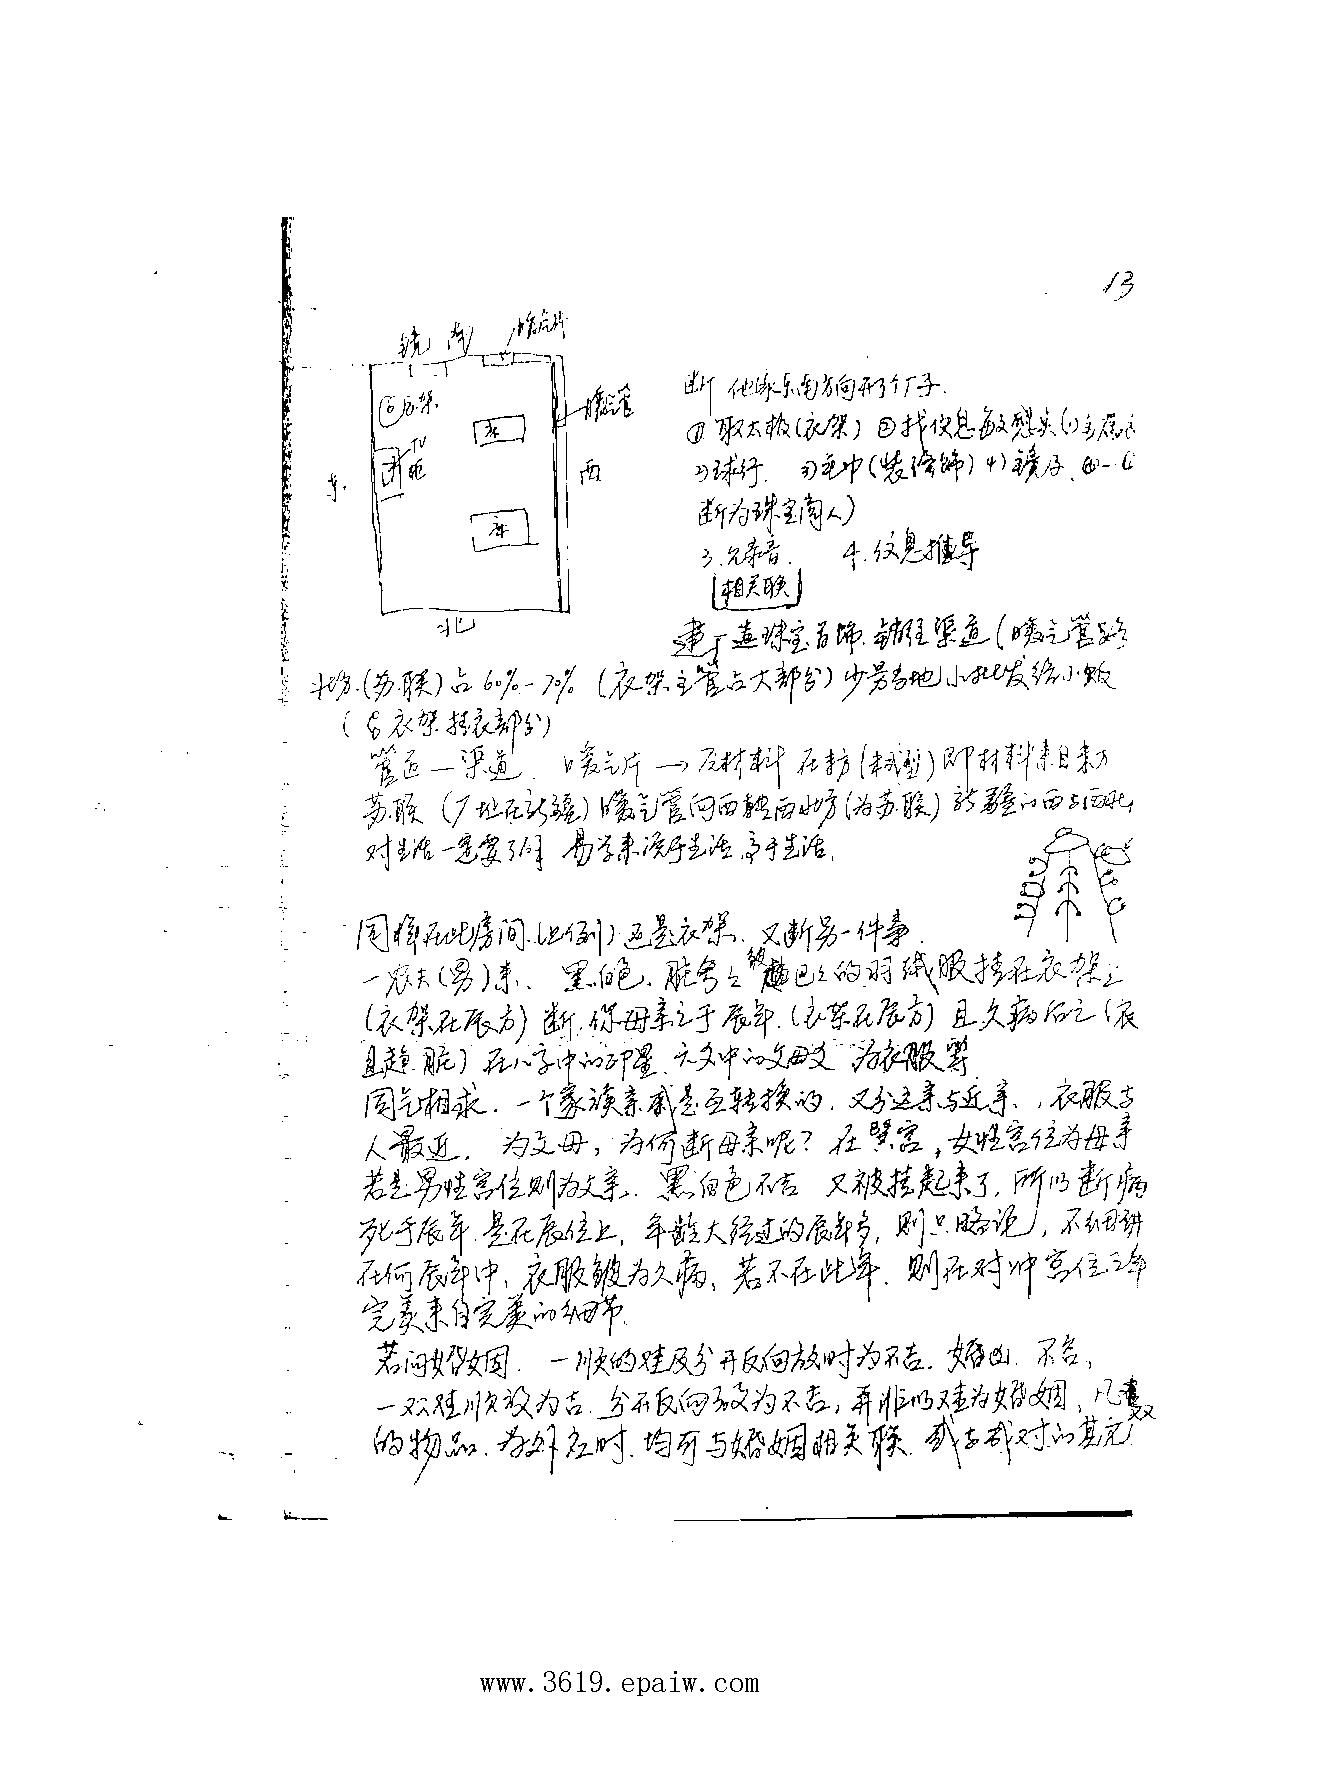 13
镜 南 暖气片
衣架
暖气管
TV
床
东 西
床
北
断 他家东南方向开了个厂子.
① 取太极(衣架) ②找信息敏感点(1)金属
2)球行. 3) (装修饰) 4)镜子.
断为珠宝商人)
3. 兄弟音. 4.信息推导
[相关联]
建厂造珠宝首饰.销往渠道(暖气管路
北方.(苏联)占60%-70% (衣架主管占大部分)少号当地小批发给小贩
(占衣架挂衣部分)
管道—渠道. 暖气片→及材料 在东方 即材料来自东方
苏联(厂址在新疆)暖气管向西转西北方(为苏联)新疆的西与西北
对生活一定要了解 易学来源于生活,高于生活.
同样在此房间.(比例)还是衣架.又断另一件事.
一农夫(男)来、黑白色.脏兮兮 皱巴巴的羽绒服挂在衣架上
(衣架在辰方)断.你母亲亡于辰年.(衣架在辰方)且久病后亡(衣
且 脏)在八字中的印星.六爻中的父母爻 为衣服等
同气相求.一个家族亲戚是互转换的.又分远亲与近亲、.衣服与
人最近. 为父母,为何断母亲呢?在巽宫,女性宫位为母亲
若是男性宫位则为父亲. 黑白色不吉 又被挂起来了.所以断病
死于辰年.是在辰位上,年龄大经过的辰年多,则只略论,不细讲
在何辰年中、衣服皱为久病、若不在此年.则在对冲宫位之年
完美来自完美的细节.
若问婚姻. 一顺的鞋及分开反向放时为不吉.婚凶.不吉,
一双鞋顺放为吉.分开反向放为不吉,再非以鞋为婚姻,凡 双
的物品.为外应时.均可与婚姻相关联.或与成对的其它
www.3619.epaiw.com